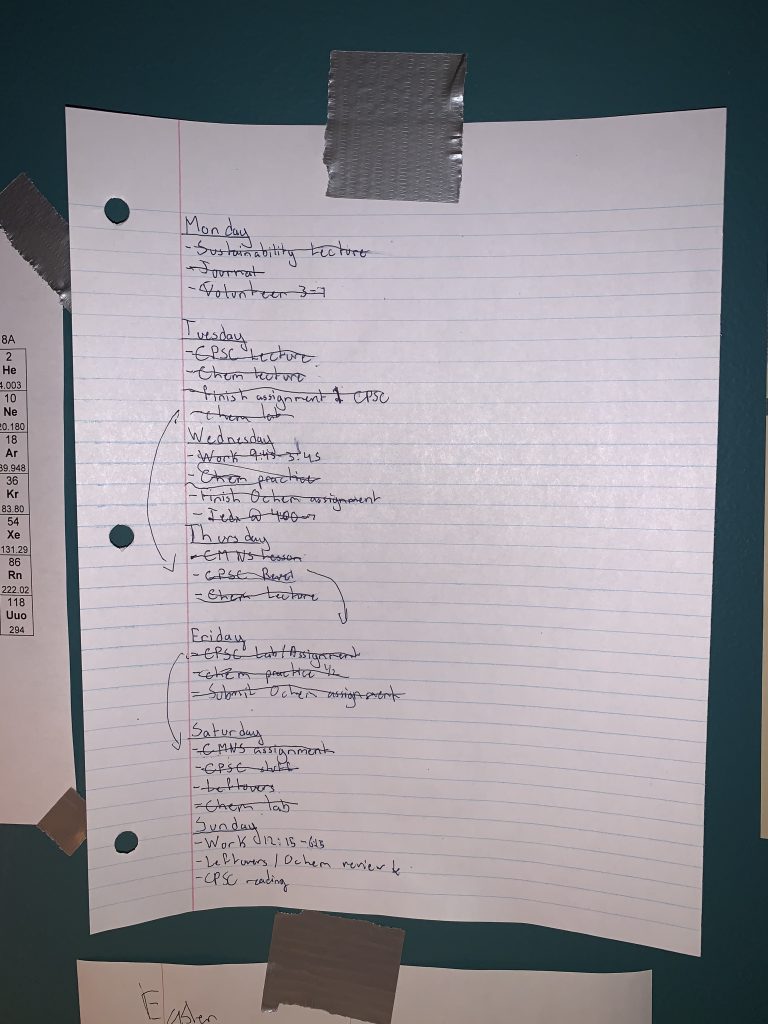 Monday
- Sustainability Lecture
- Journal
- Volunteer 3-7
Tuesday
- CPSC Lecture
- Chem lecture
- Finish assignment 1 CPSC
- Chem lab
Wednesday
- Work 9:45-3:45
- Chem practice
- Finish Ochem assignment
- @ 400
Thursday
- CMNS Lesson
- CPSC
- Chem Lecture
Friday
- CPSC Lab/Assignment
- chem practice 1/2
- Submit Ochem assignment
Saturday
- CMNS assignment
- CPSC
- Leftovers
- Chem lab
Sunday
- Work 12:15-645
- Leftovers / Ochem review
- CPSC reading
8A
2
He
4.003
10
Ne
20.180
18
Ar
39.948
36
Kr
83.80
54
Xe
131.29
86
Rn
222.02
118
Uuo
294
Easter